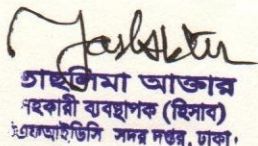 তাহলিমা আক্তার
সহকারী ব্যবস্থাপক (হিসাব)
এফআইডিসি সদর দপ্তর, ঢাকা।